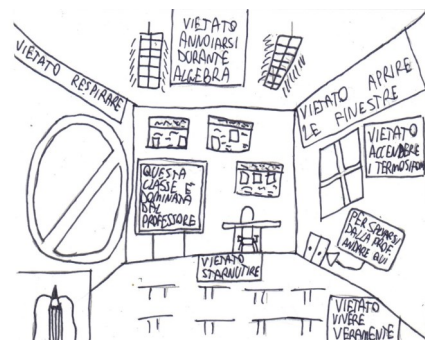 VIETATO
ANNOIARSI
DURANTE
ALGEBRA
VIETATO RESPIRARE
VIETATO APRIRE
LE FINESTRE
VIETATO
ACCENDERE
I TERMOSIFONI
QUESTA
CLASSE È
DOMINATA
DAL
PROFESSORE
PER
DALLA PROF
ANDARE QUI
VIETATO
STARNUTIRE
VIETATO
VIVERE
VERAMENTE